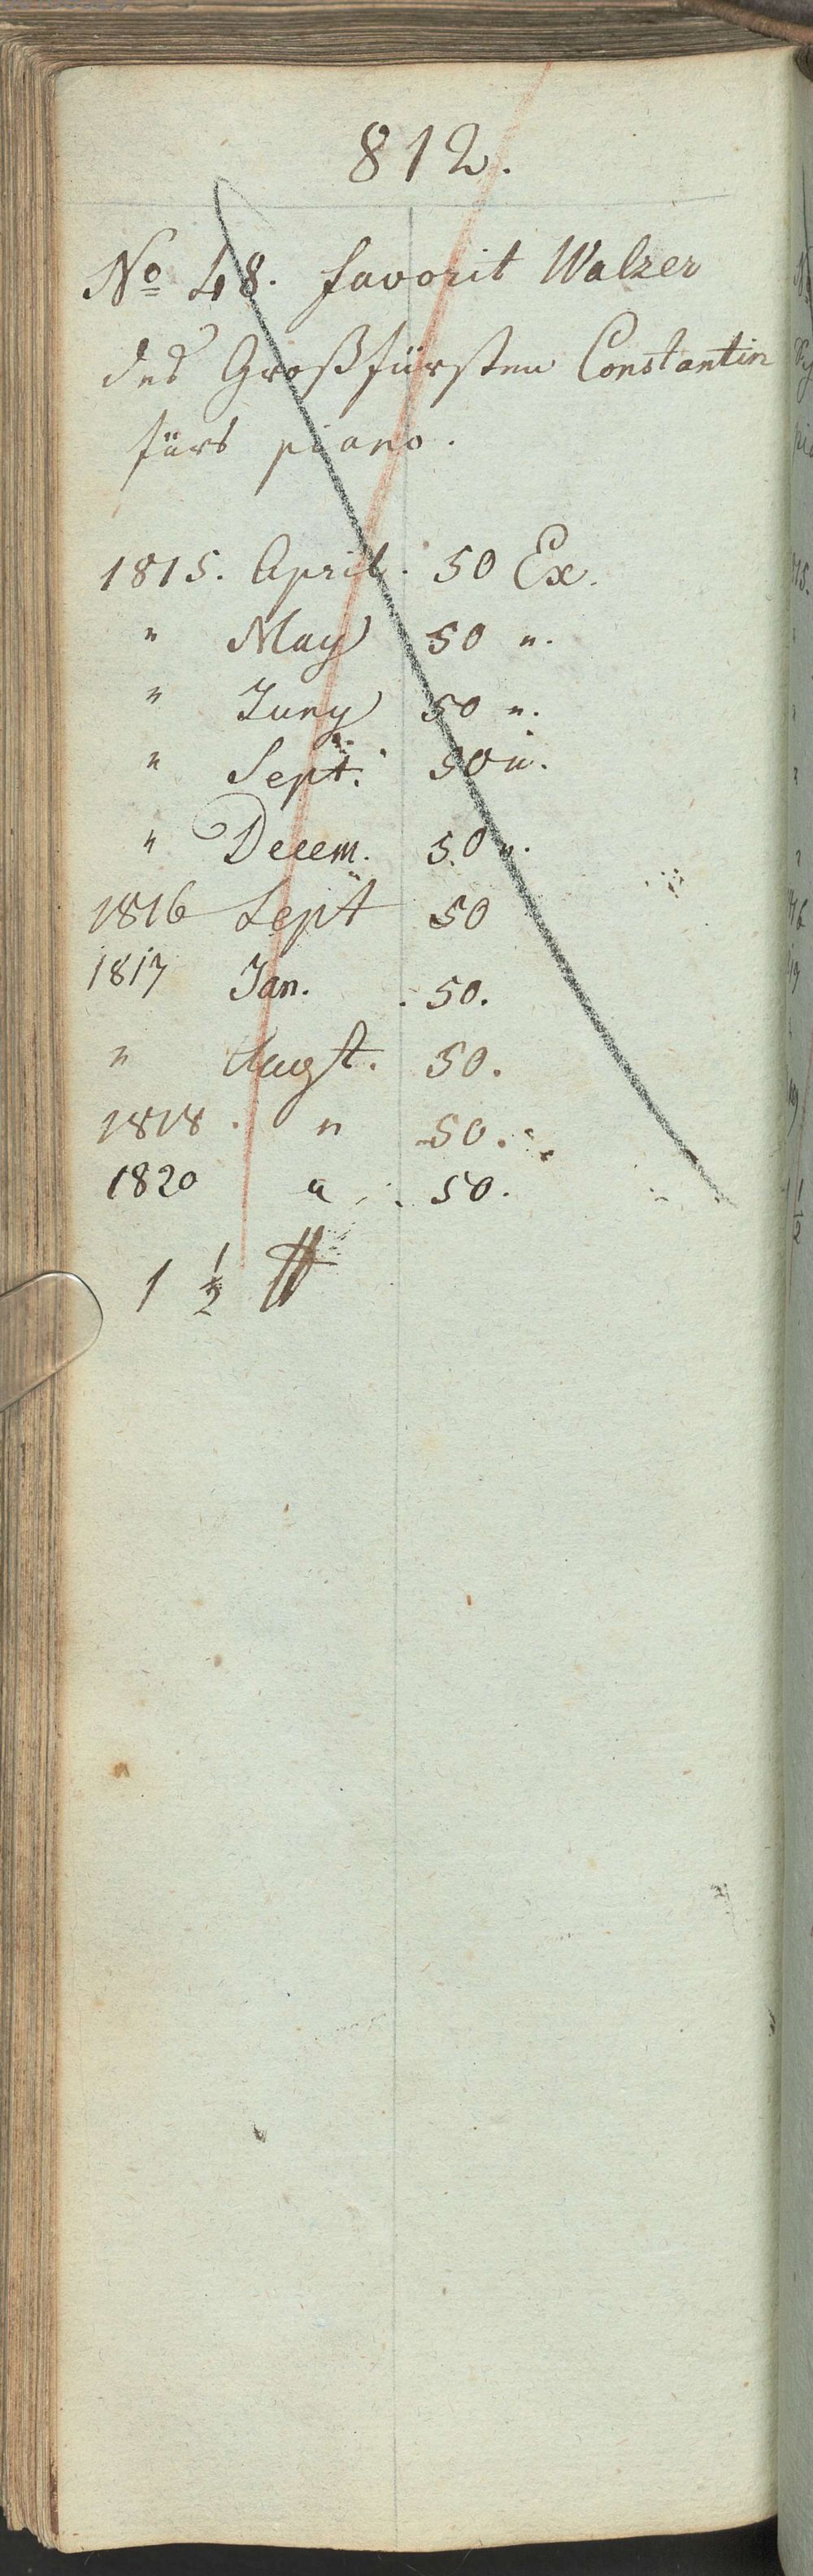 812.
No 48. favorit Walzer
des Großfürsten Constantin
fürs piano.
1815. April. 50 Ex.
" May 50 ".
" Juny 50 ".
" Sept. 50 ".
" Decem. 50 ".
1816 Sept 50
1817 Jan. 50.
" Augst. 50.
1818. " 50.
1820 " 50.
1 1/2 ℔